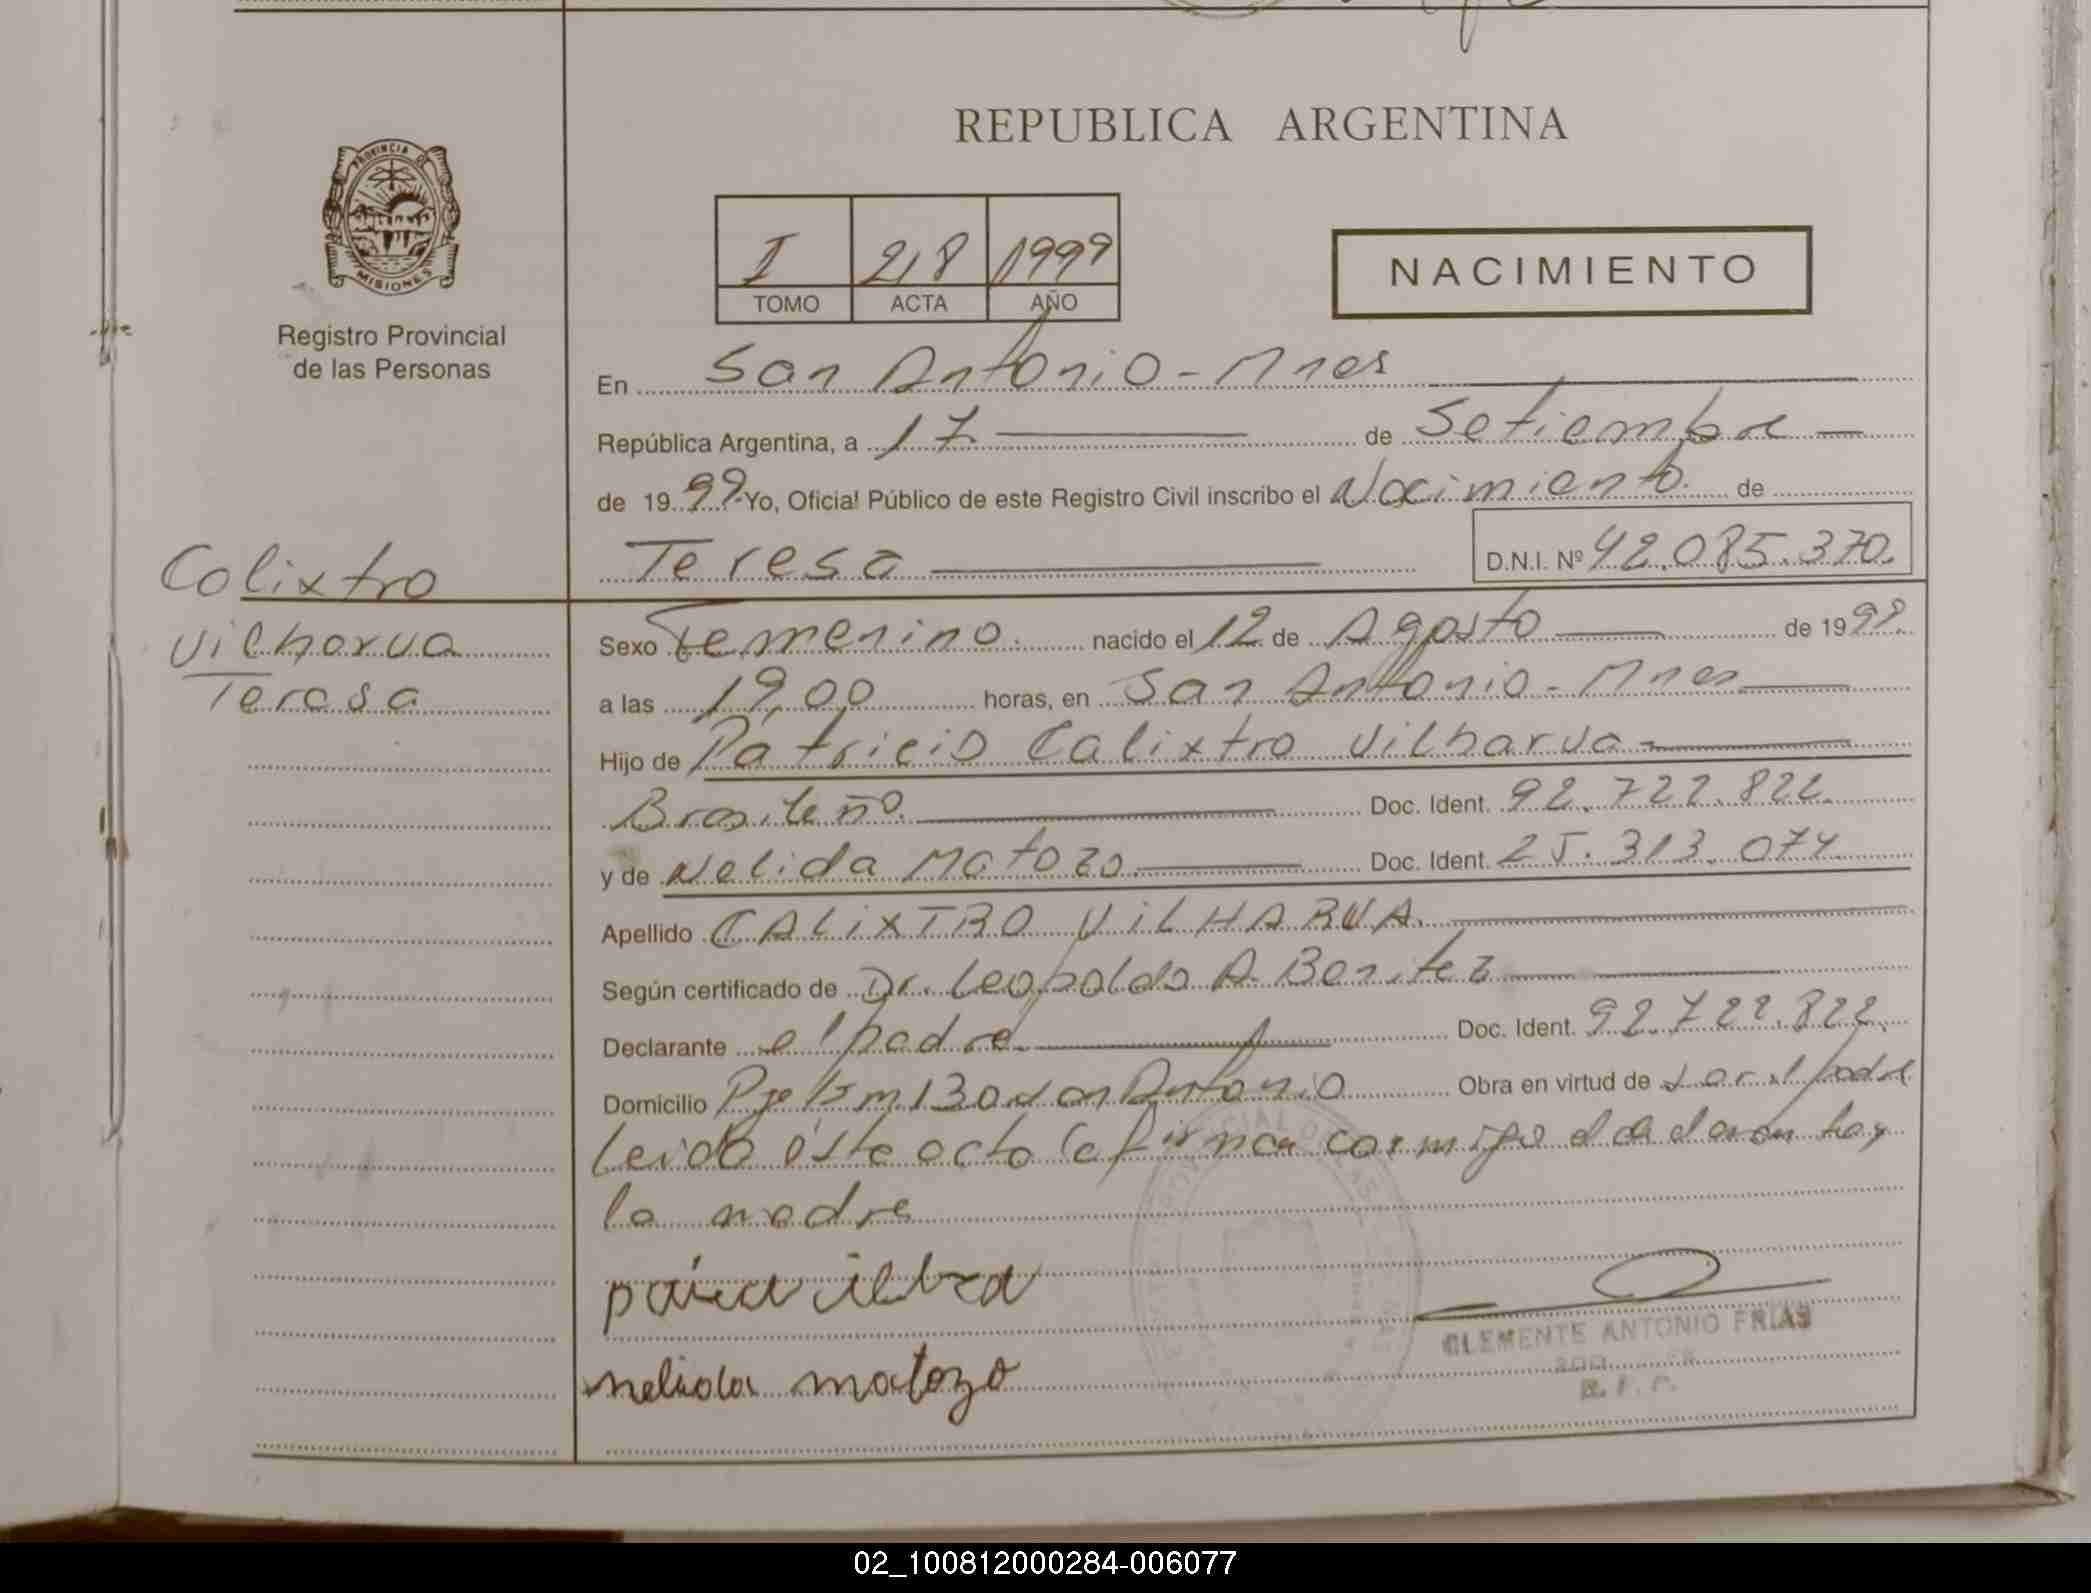 REPUBLICA ARGENTINA
PROVINCIA DE
MISIONES
Registro Provincial
de las Personas
I 218 1999
TOMO ACTA AÑO
NACIMIENTO
En San Antonio - Mnes
República Argentina, a 17 de Setiembre
de 1999 Yo, Oficial Público de este Registro Civil inscribo el Nacimiento de
Teresa D.N.I. Nº 42.085.370.
Calixtro
Vilharva
Teresa
Sexo Femenino. nacido el 12 de Agosto de 1999.
a las 19,00 horas, en San Antonio - Mnes
Hijo de Patricio Calixtro Vilharva
Brasileño. Doc. Ident. 92.722.822.
y de Nelida Matozo. Doc. Ident. 25.313.074
Apellido CALIXTRO VILHARVA.
Según certificado de Dr. Leopoldo A. Benitez
Declarante el padre Doc. Ident. 92.722.822.
Domicilio Pje San Antonio Obra en virtud de ser el padre
Leido éste acta la firman conmigo el declaran hay
la madre
nelida matozo
CLEMENTE ANTONIO FRIAS
R. P. P.
02_100812000284-006077